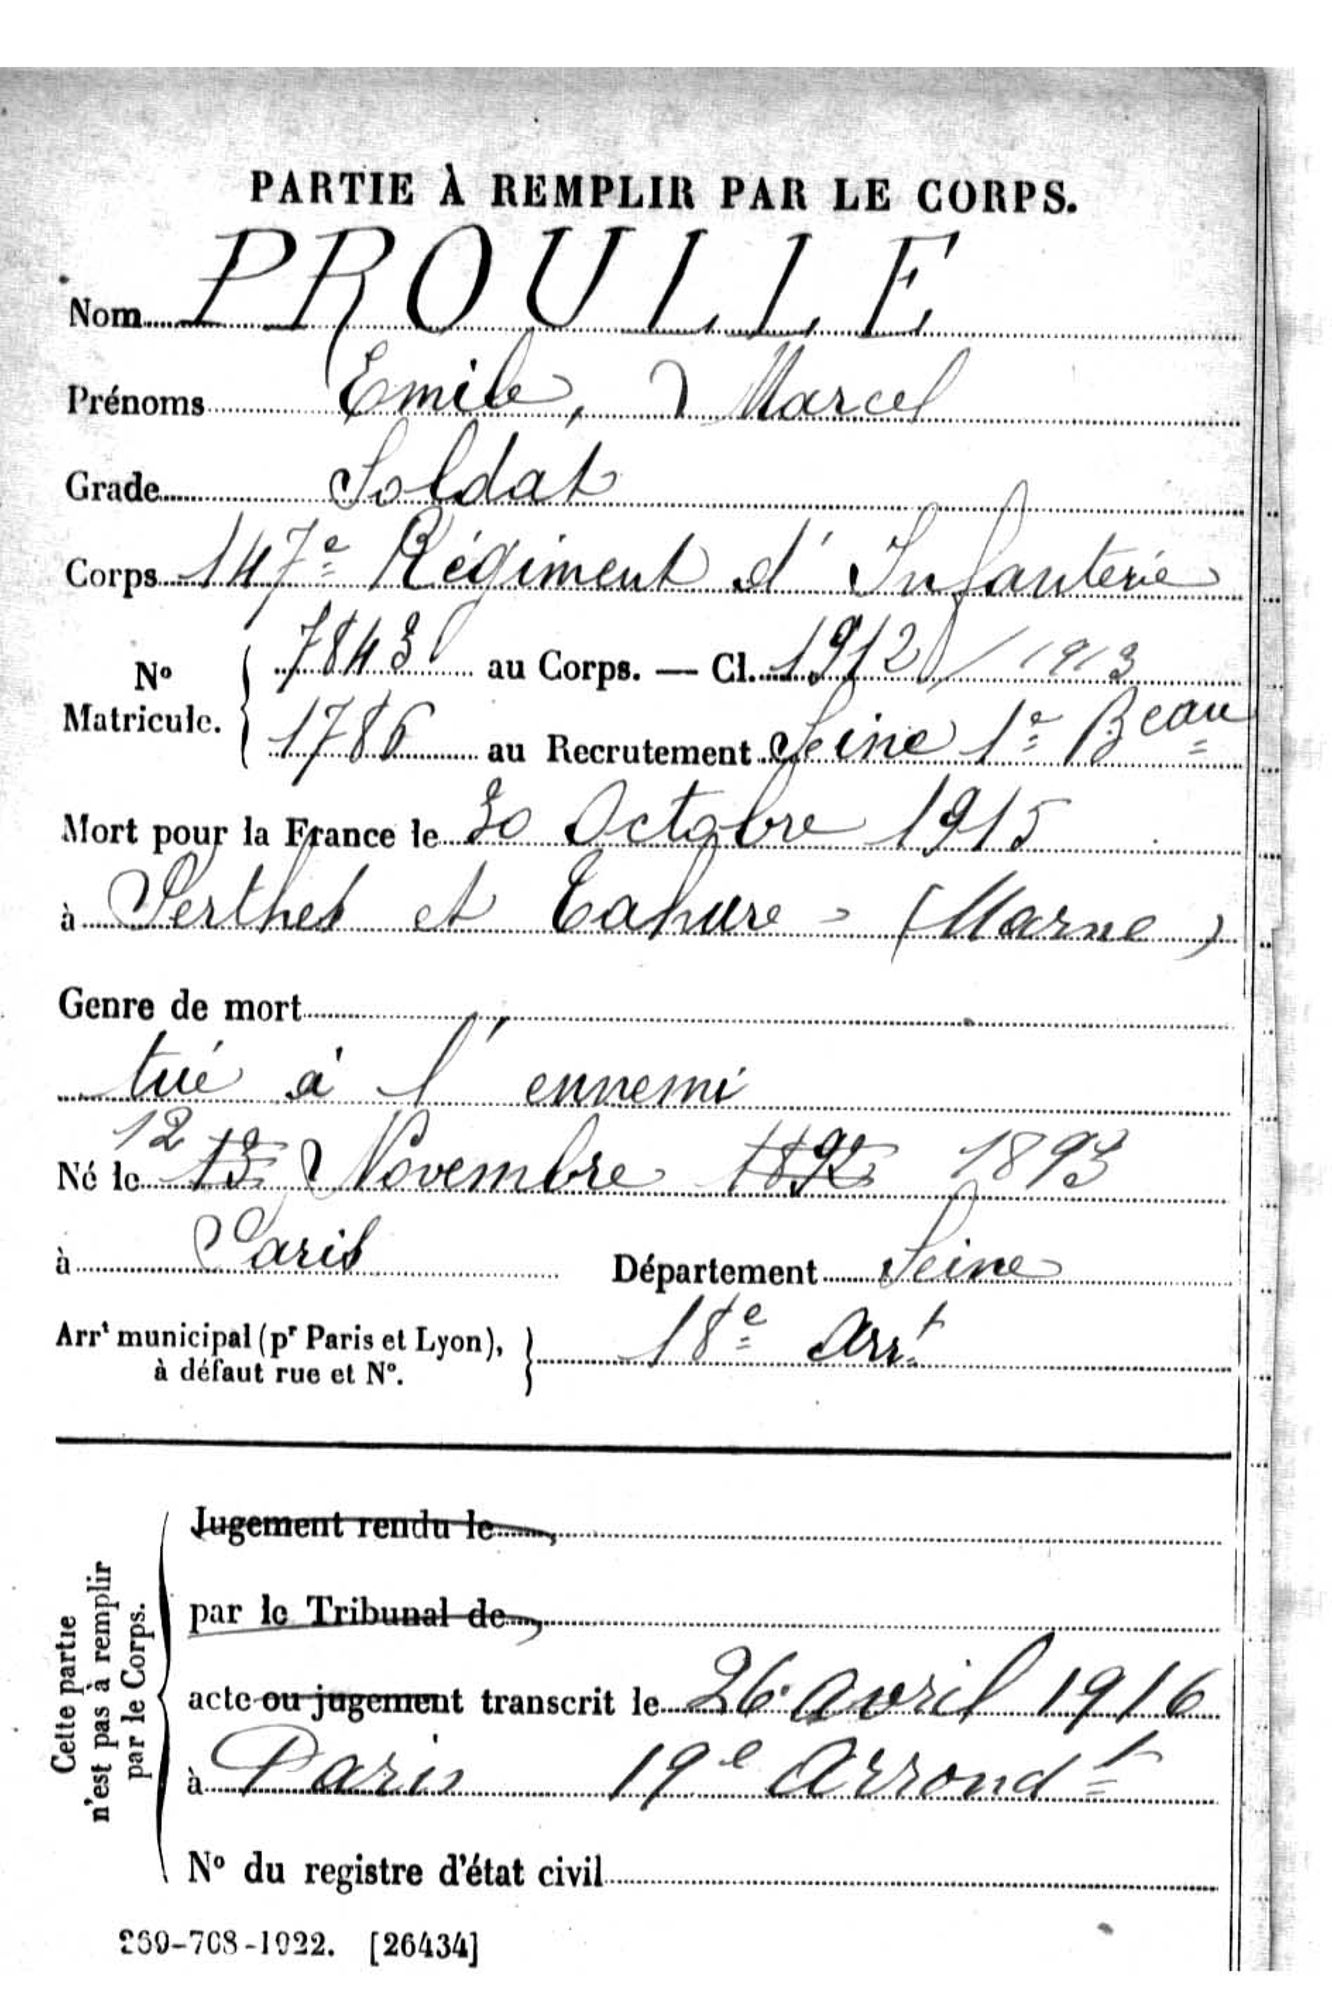 PARTIE À REMPLIR PAR LE CORPS.
Nom PROULLE
Prénoms Emile, Marcel
Grade Soldat
Corps 147e Régiment d'Infanterie
No Matricule. { 7843 au Corps. — Cl. 1912 / 1913
1786 au Recrutement Seine 1e Beau
Mort pour la France le 30 Octobre 1915
à Perthes et Tahure - (Marne)
Genre de mort
tué à l'ennemi
12
Né le 13 Novembre 1892 1893
à Paris Département Seine
Arrt municipal (pr Paris et Lyon), } 18e Arrt
à défaut rue et No.
Cette partie
n'est pas à remplir
par le Corps.
Jugement rendu le
par le Tribunal de
acte ou jugement transcrit le 26 avril 1916
à Paris 19e Arrondt
No du registre d'état civil
269-708-1922. [26434]